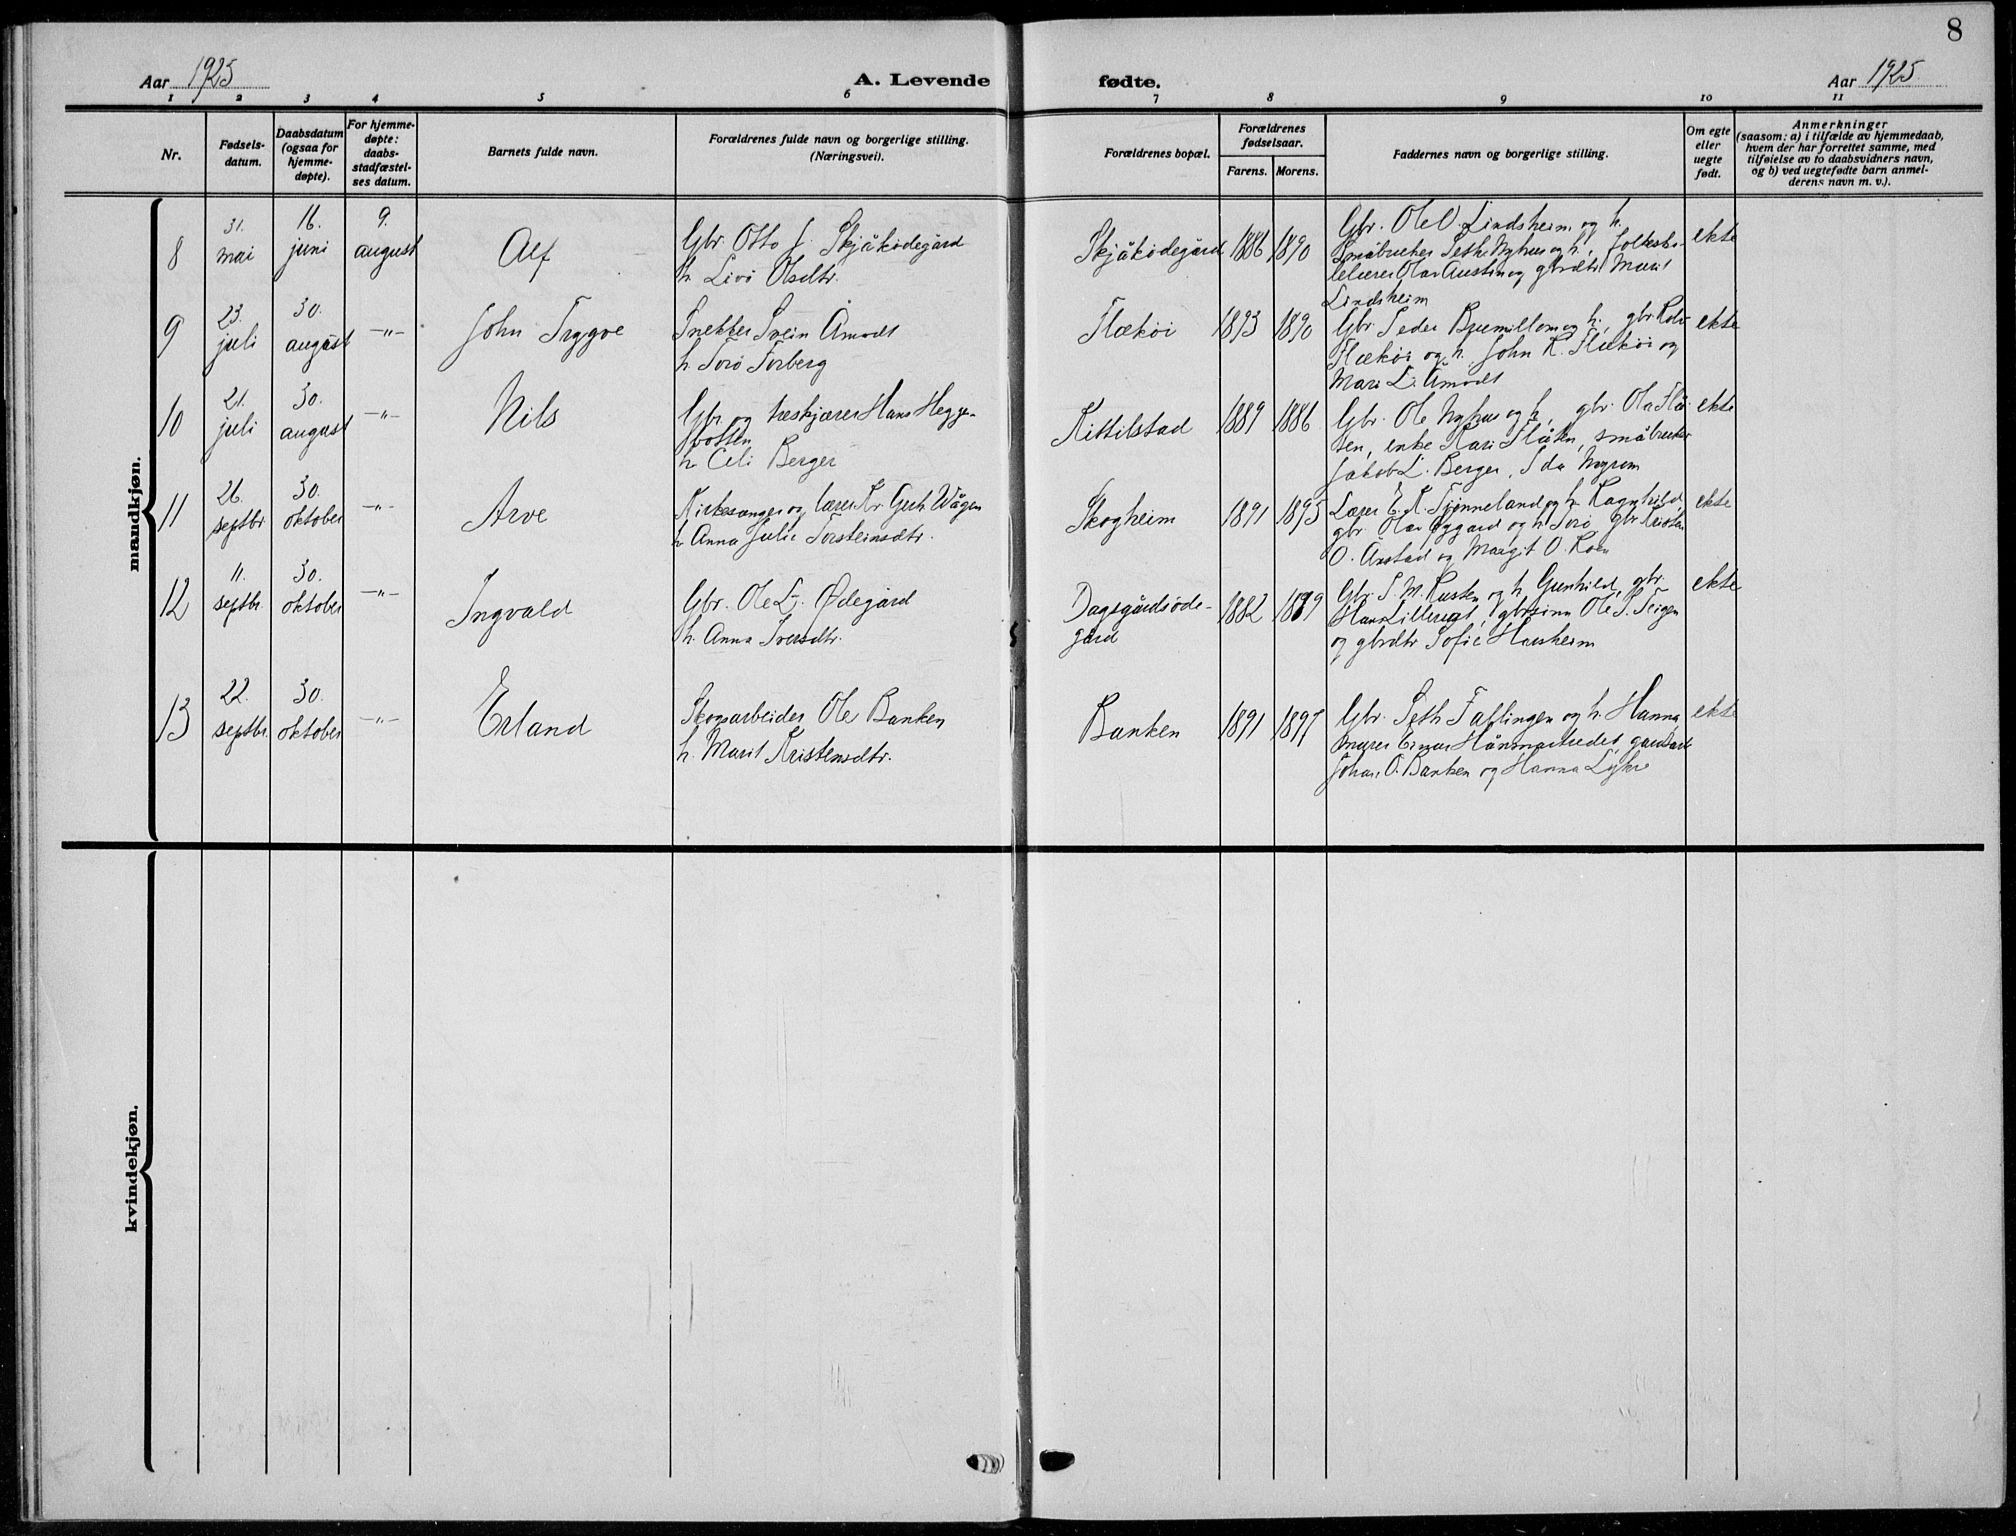 8
Aar 1925
A. Levende
fødte.
Aar 1925
1 2 3 4 5 6 7 8 9 10 11
Nr.
Fødsels-
datum.
Daabsdatum
(ogsaa for
hjemme-
døpte).
For hjemme-
døpte:
daabs-
stadfæstel-
ses datum.
Barnets fulde navn.
Forældrenes fulde navn og borgerlige stilling.
(Næringsvei).
Forældrenes bopæl.
Forældrenes
fødselsaar.
Farens. Morens.
Faddernes navn og borgerlige stilling.
Om egte
eller
uegte
født.
Anmerkninger
(saasom: a) i tilfælde av hjemmedaab,
hvem der har forrettet samme, med
tilføielse av to daabsvidners navn,
og b) ved uegtefødte barn anmel-
derens navn m. v.).
mandkjøn.
8
31.
mai
16.
juni
9.
august
Alf
Gbr. Otto J. Skjåkødegård
h. Livö Olsdtr.
Skjåkødegård
1886 1890
Gbr. Ole O. Lindsheim og h.
Småbruker Seth Nyhus og h., folkesko-
lelærer Olav Austin og gbrdtr. Marit
Lindsheim
ekte
9
23.
juli
30.
august
-"-
John Trygve
Snekker Svein Åmodt
h. Torö Torberg
Flækøi
1893 1890
Gbr. Peder Bjumillom og h., gbr. Kolb
Flækøi og h. John K. Flækøi og
Mari L. Åmodt
ekte
10
21.
juli
30.
august
-"-
Nils
Gbr. og træskjærer Hans Hegge-
botten
h. Celi Berger
Kittilstad
1889 1886
Gbr. Ole Nyhus og h., gbr. Ola Flå-
ten, enke Kari Flåten, småbruker
Jakob L. Berger, Ida Mogrem
ekte
11
26.
septbr.
30.
oktober
-"-
Arve
Kirkesanger og lærer Kr. Gerh. Vågen
h. Anna Julie Torsteinsdtr.
Skogheim
1891 1895
Lærer E. K. Tjønneland og h. Ragnhild,
gbr. Olav Øygard og h. Torö, gbr. Kristen
O. Årstad og Margit O. Roen
ekte
12
11.
septbr.
30.
oktober
-"-
Ingvald
Gbr. Ole L. Ødegård
h. Anna Iversdtr.
Dagsgårdsøde-
gård
1882 1889
Gbr. S. M. Kusten og h. Gunhild, gbr.
Hans Lillerust, gbrsønn Ole P. Teigen
og gbrdtr Sofie Hausheim
ekte
13
22.
septbr.
30.
oktober
-"-
Erland
Skogsarbeider Ole Banken
h. Marit Kristensdtr.
Banken
1891 1897
Gbr. Seth Taflingen og h. Hanna
murer Einar gardarb.
Johan O. Banken og Hanna
ekte
kvindekjøn.